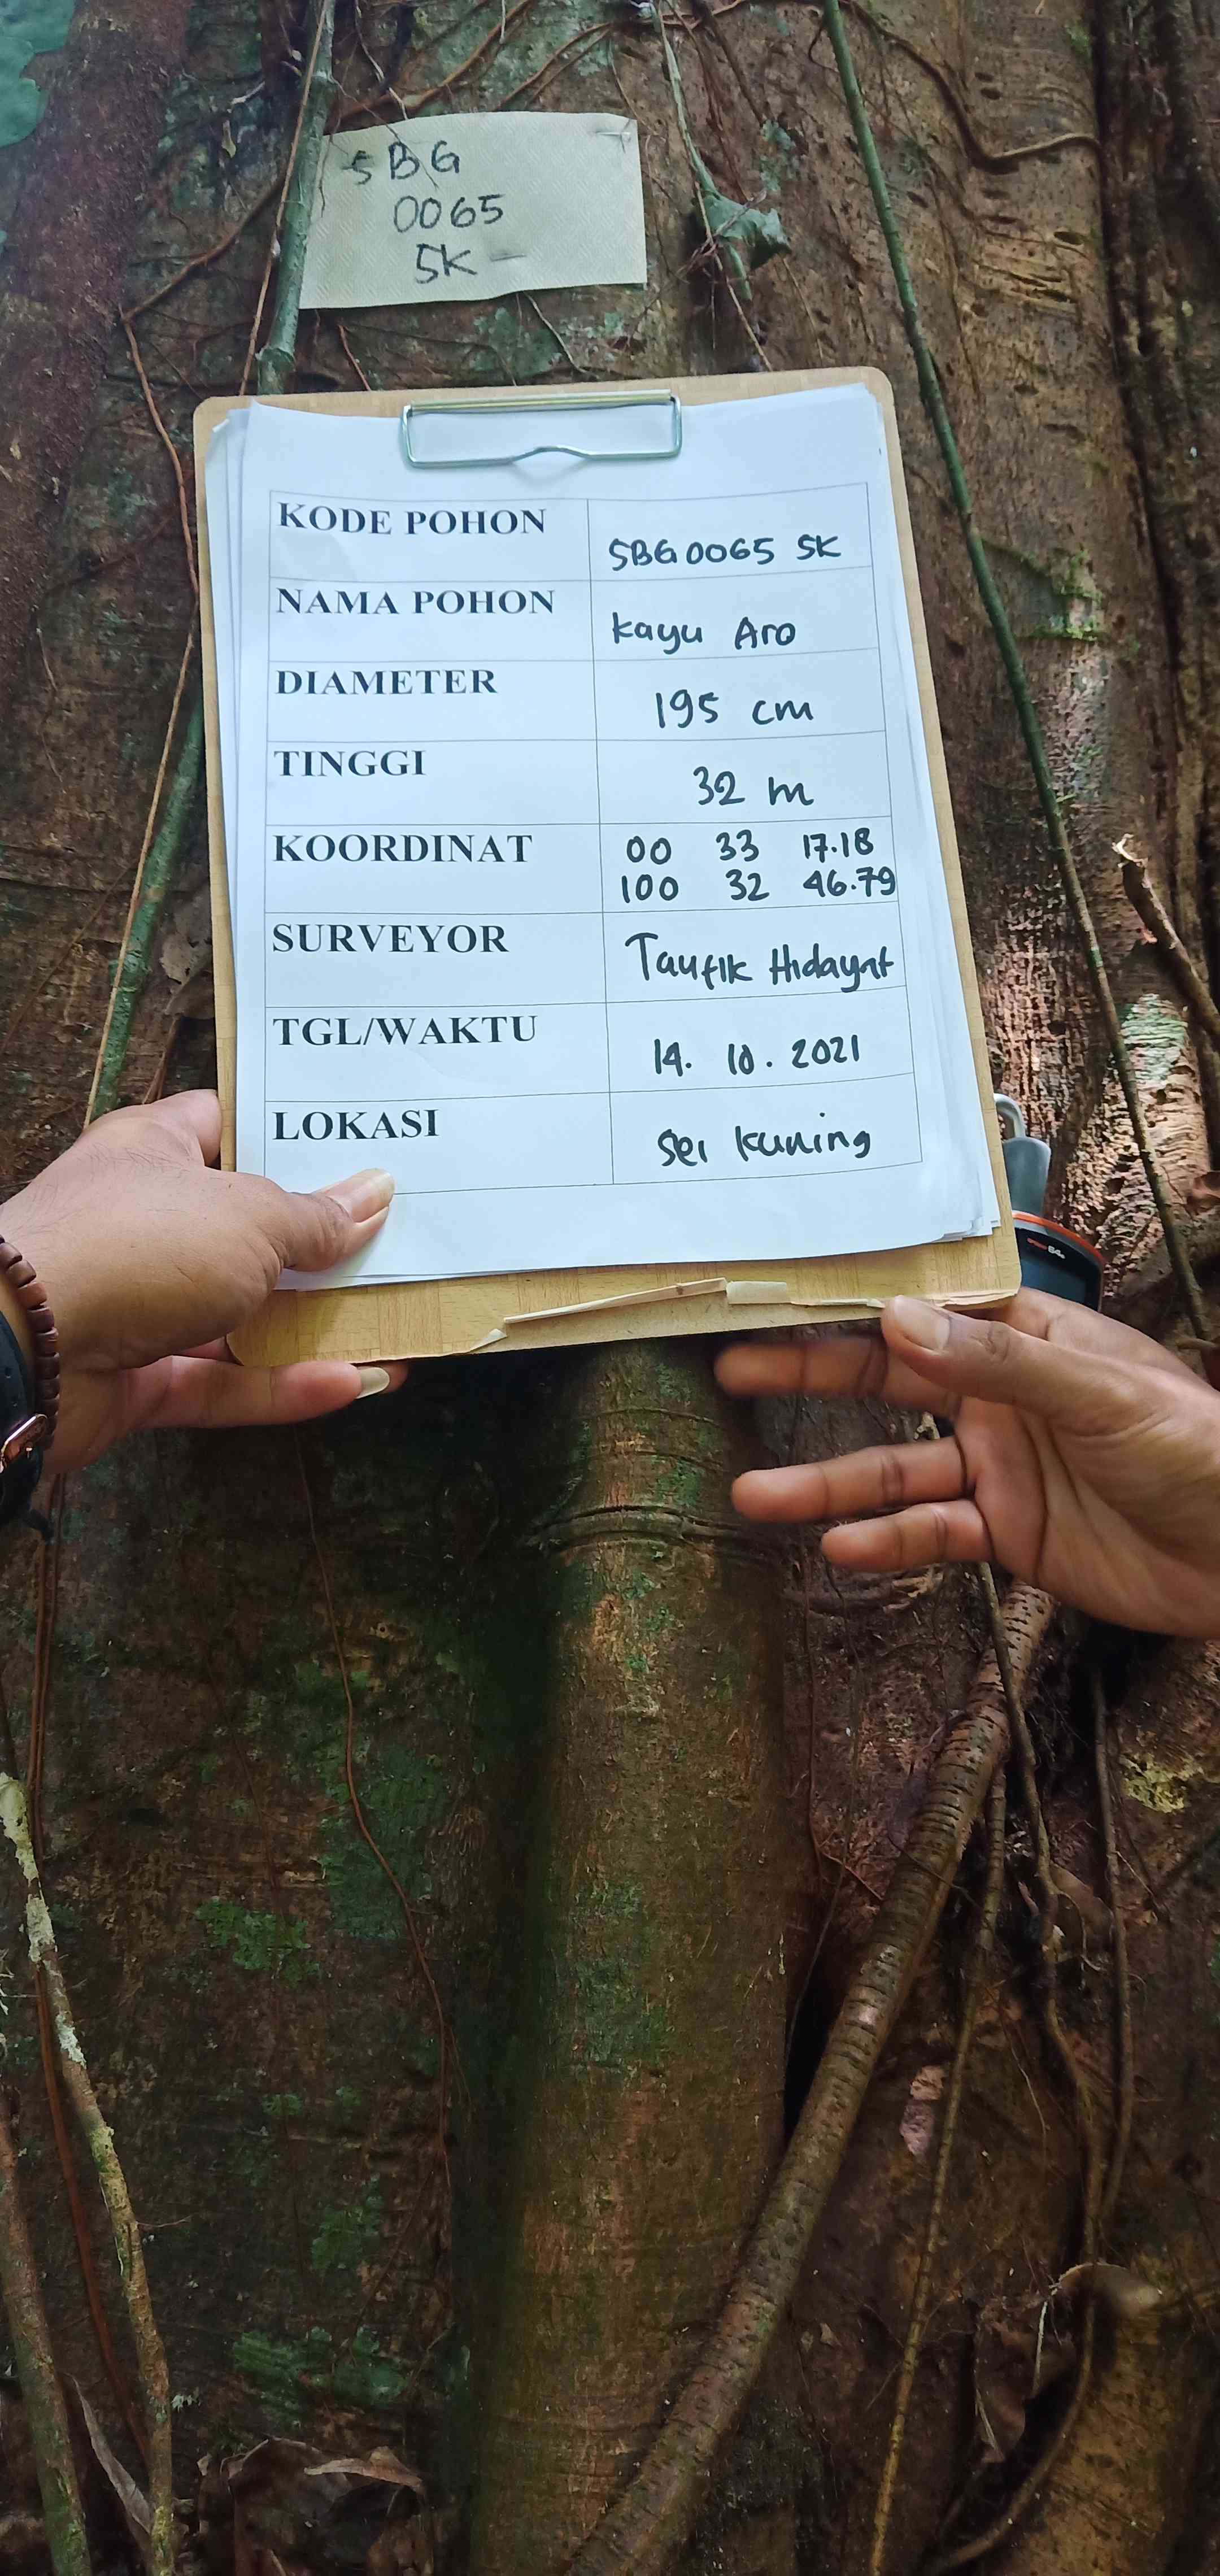 SBG
0065
SK
KODE POHON SBG0065 SK
NAMA POHON Kayu Aro
DIAMETER 195 cm
TINGGI 32 m
KOORDINAT 00 33 17.18
100 32 46.79
SURVEYOR Taufik Hidayat
TGL/WAKTU 14. 10. 2021
LOKASI Sei Kuning